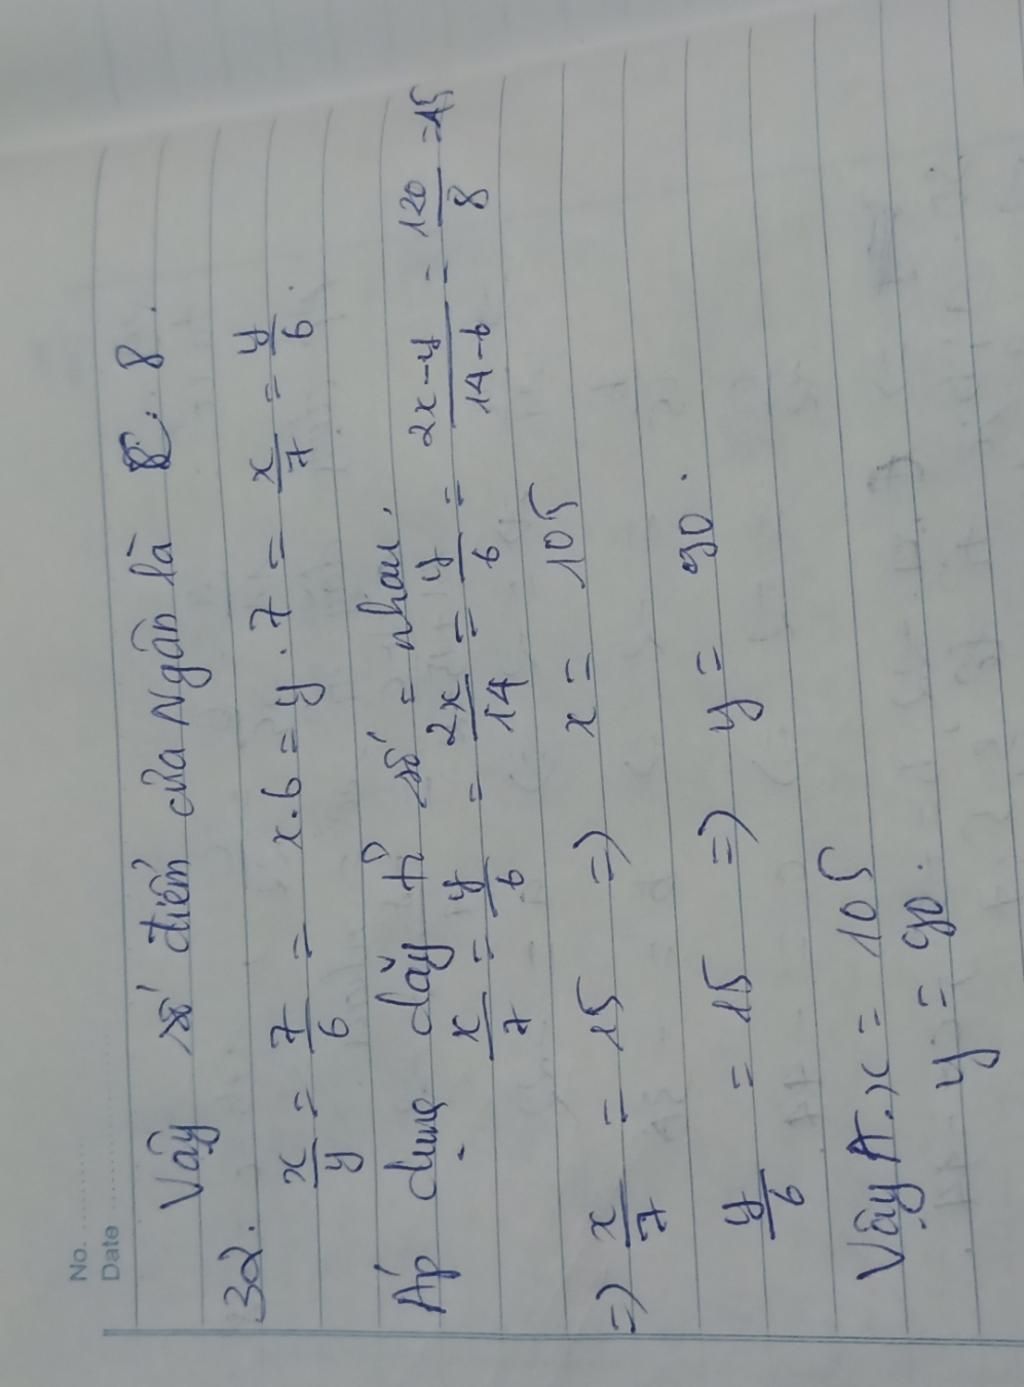 No. ............
Date ............
Vậy số điểm của Ngân là 8.
32. x/y = 7/6 = x.6 = y.7 = x/7 = y/6.
Áp dụng dãy tỉ số = nhau.
x/7 = y/6 = 2x/14 = y/6 = 2x-y/14-6 = 120/8 = 15
=) x/7 = 15 =) x = 105
y/6 = 15 =) y = 90.
Vậy x = 105
y = 90.